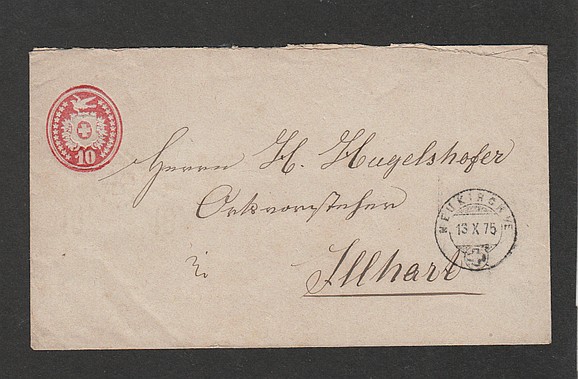 10
Herrn H. Hugelshofer
Ortsvorsteher
in
Illhart
NEUKIRCH
13 X 75